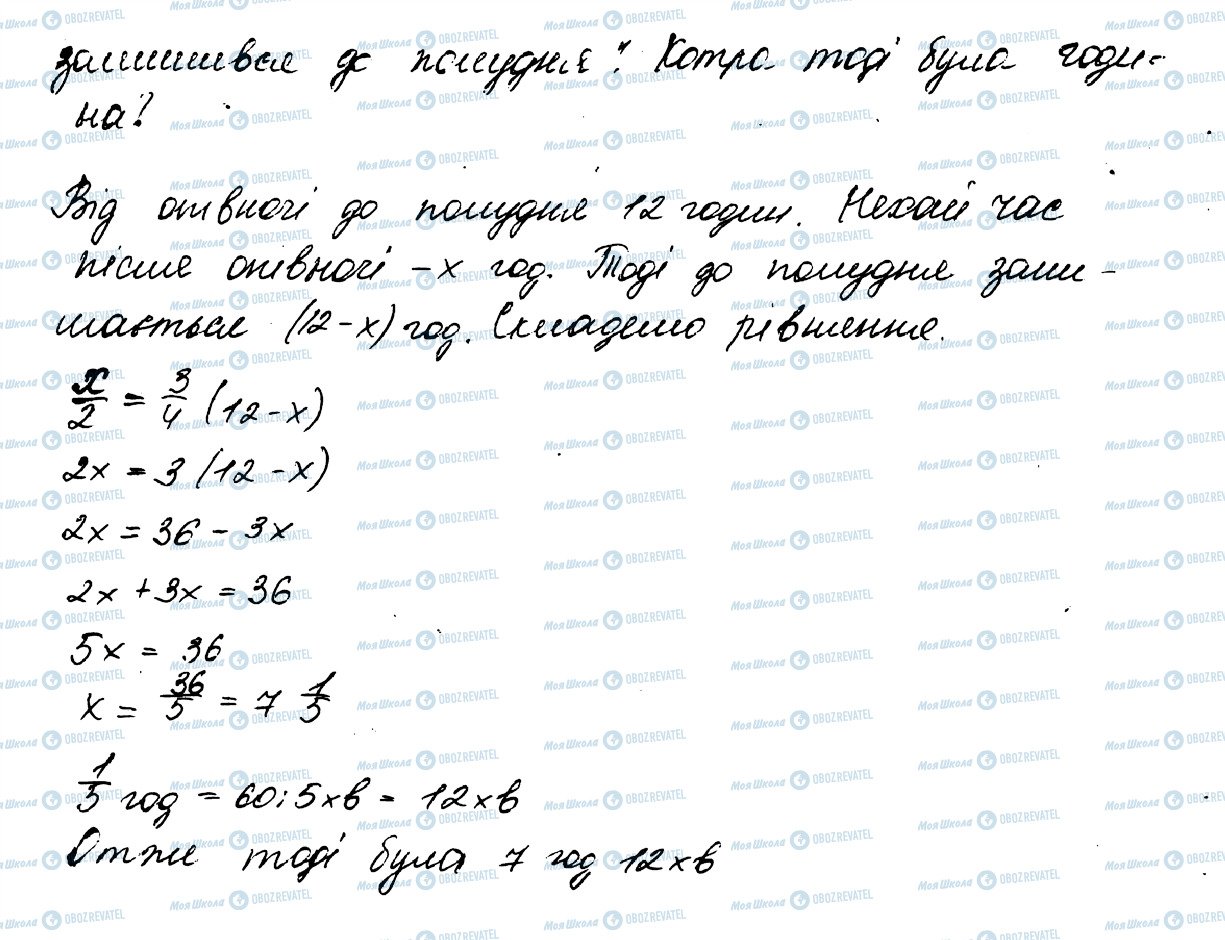 залишився до полудня". Котра тоді була годи-
на?
Від опівночі до полудня 12 годин. Нехай час
після опівночі – x год. Тоді до полудня зали-
шається (12 - x) год. Складемо рівняння.
x/2 = 3/4 (12 - x)
2x = 3 (12 - x)
2x = 36 - 3x
2x + 3x = 36
5x = 36
x = 36/5 = 7 1/5
1/5 год = 60:5 хв = 12 хв
Отже тоді була 7 год 12 хв
МояШкола OBOZREVATEL